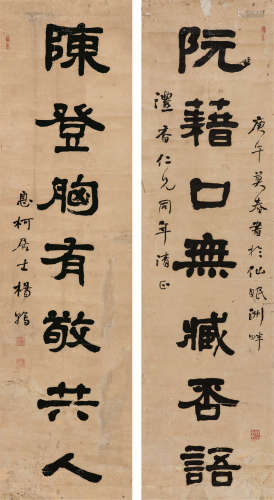 庚午莫春書於仙眠洲畔
阮藉口無臧否語
澧香仁兄同年清正
陳登胸有敬共人
息柯居士楊翰